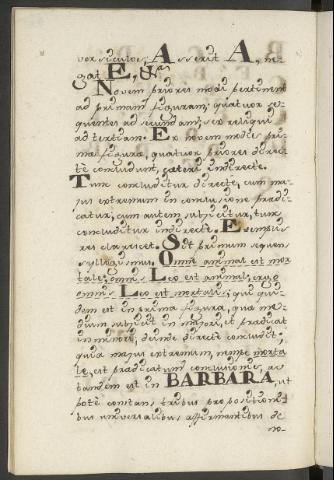 versiculos; Asserit A, ne-
gat E, &a.
Novem priores modi pertinent
ad primam figuram; quatuor se-
quentes ad secundam; sex reliqui
ad tertiam. Ex novem modis pri-
mæ figuræ, quatuor priores direc-
te concludunt, cæteri indirecte.
Tum concluditur directe, cum ma-
jus extremum in conclusione prædi-
catur, cum autem subjicitur, tunc
concluditur indirecte. Exemplis
res clarescet. Sit primum sequens
syllogismus. Omne animal est mor-
tale; omnis Leo est animal; ergo
omnis Leo est mortalis; qui qui-
dem est in prima figura, quia me-
dium subjicit in majori, et prædicat
in minori; deinde directe concludit,
quia majus extremum, nempe morta-
le, est prædicatum conclusionis, ac
tandem est in BARBARA, ut
pote constans tribus proposition
bus universalibus affirmantibus de
no-